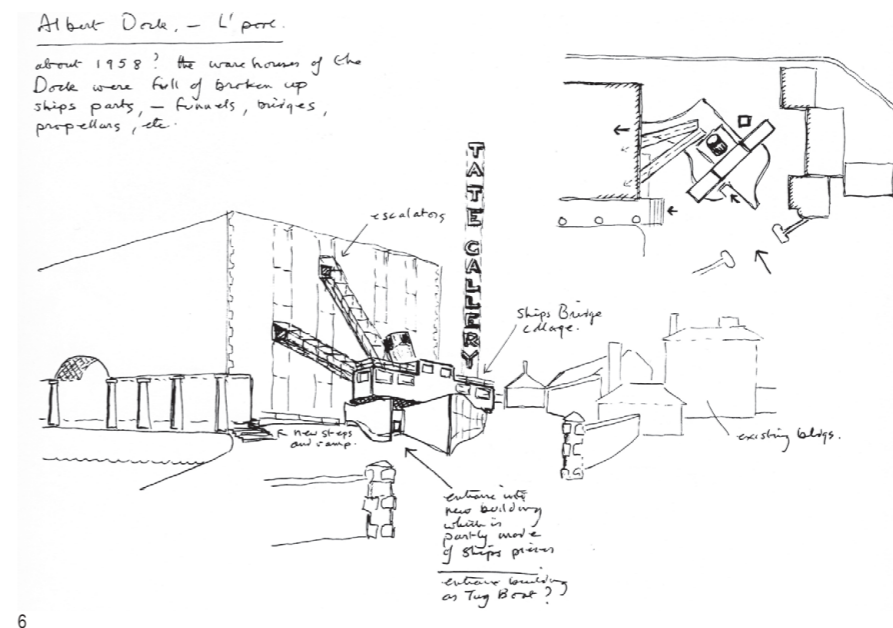 Albert Dock, – L'pool.
about 1958? the warehouses of the
Dock were full of broken up
ships parts, – funnels, bridges,
propellars, etc.
escalators
TATE GALLERY
Ships Bridge
collage.
new steps
and ramp.
existing bldgs.
entrance into
new building
which is
partly made
of ships pieces
entrance building
as Tug Boat?
6